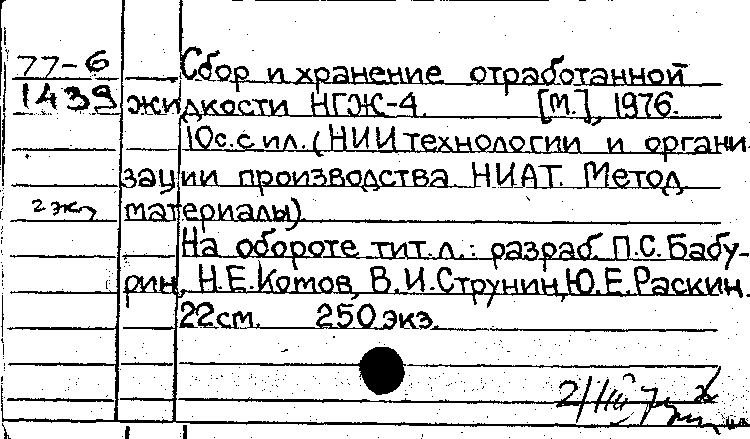 77-6 Сбор и хранение отработанной
1439 жидкости НГЖ-4. [М.], 1976.
10с. с ил. (НИИ технологии и органи-
зации производства НИАТ. Метод.
2 экз материалы)
На обороте тит. л.: разраб. П.С. Бабу-
рин, Н.Е. Котов, В.И. Струнин, Ю.Е. Раскин.
22см. 250 экз.